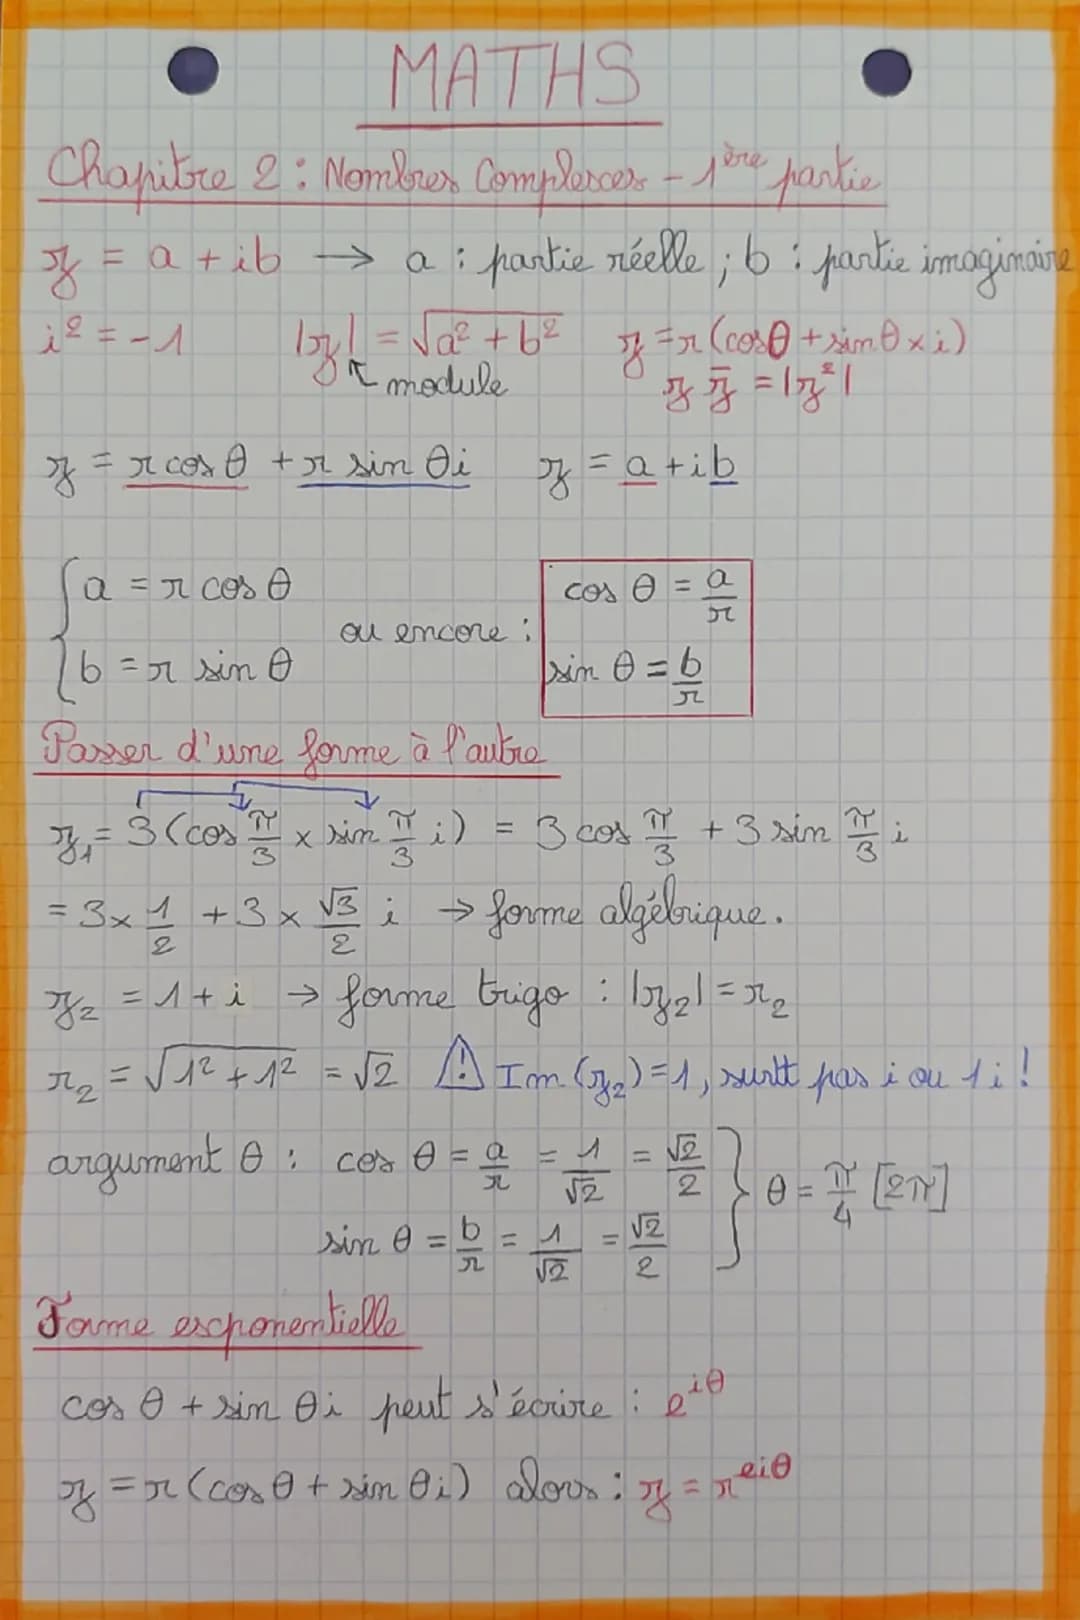 MATHS
Chapitre 2 : Nombres Complexes - 1ère partie
z = a + ib → a : partie réelle ; b : partie imaginaire
i² = -1 |z| = √(a² + b²) z = r (cosθ + sinθ × i)
↖ module z z̄ = |z²|
z = r cos θ + r sin θi z = a + ib
{ a = r cos θ
ou encore :
b = r sin θ
cos θ = a/r
sin θ = b/r
Passer d'une forme à l'autre
z₁ = 3 (cos π/3 × sin π/3 i) = 3 cos π/3 + 3 sin π/3 i
= 3 × 1/2 + 3 × √3/2 i → forme algébrique.
z₂ = 1 + i → forme trigo : |z₂| = r₂
r₂ = √(1² + 1²) = √2 ⚠ Im (z₂) = 1, surtt pas i ou 1i !
argument θ : cos θ = a/r = 1/√2 = √2/2
sin θ = b/r = 1/√2 = √2/2 } θ = π/4 [2π]
Forme exponentielle
cos θ + sin θi peut s'écrire : e^iθ
z = r (cos θ + sin θi) alors : z = r^eiθ